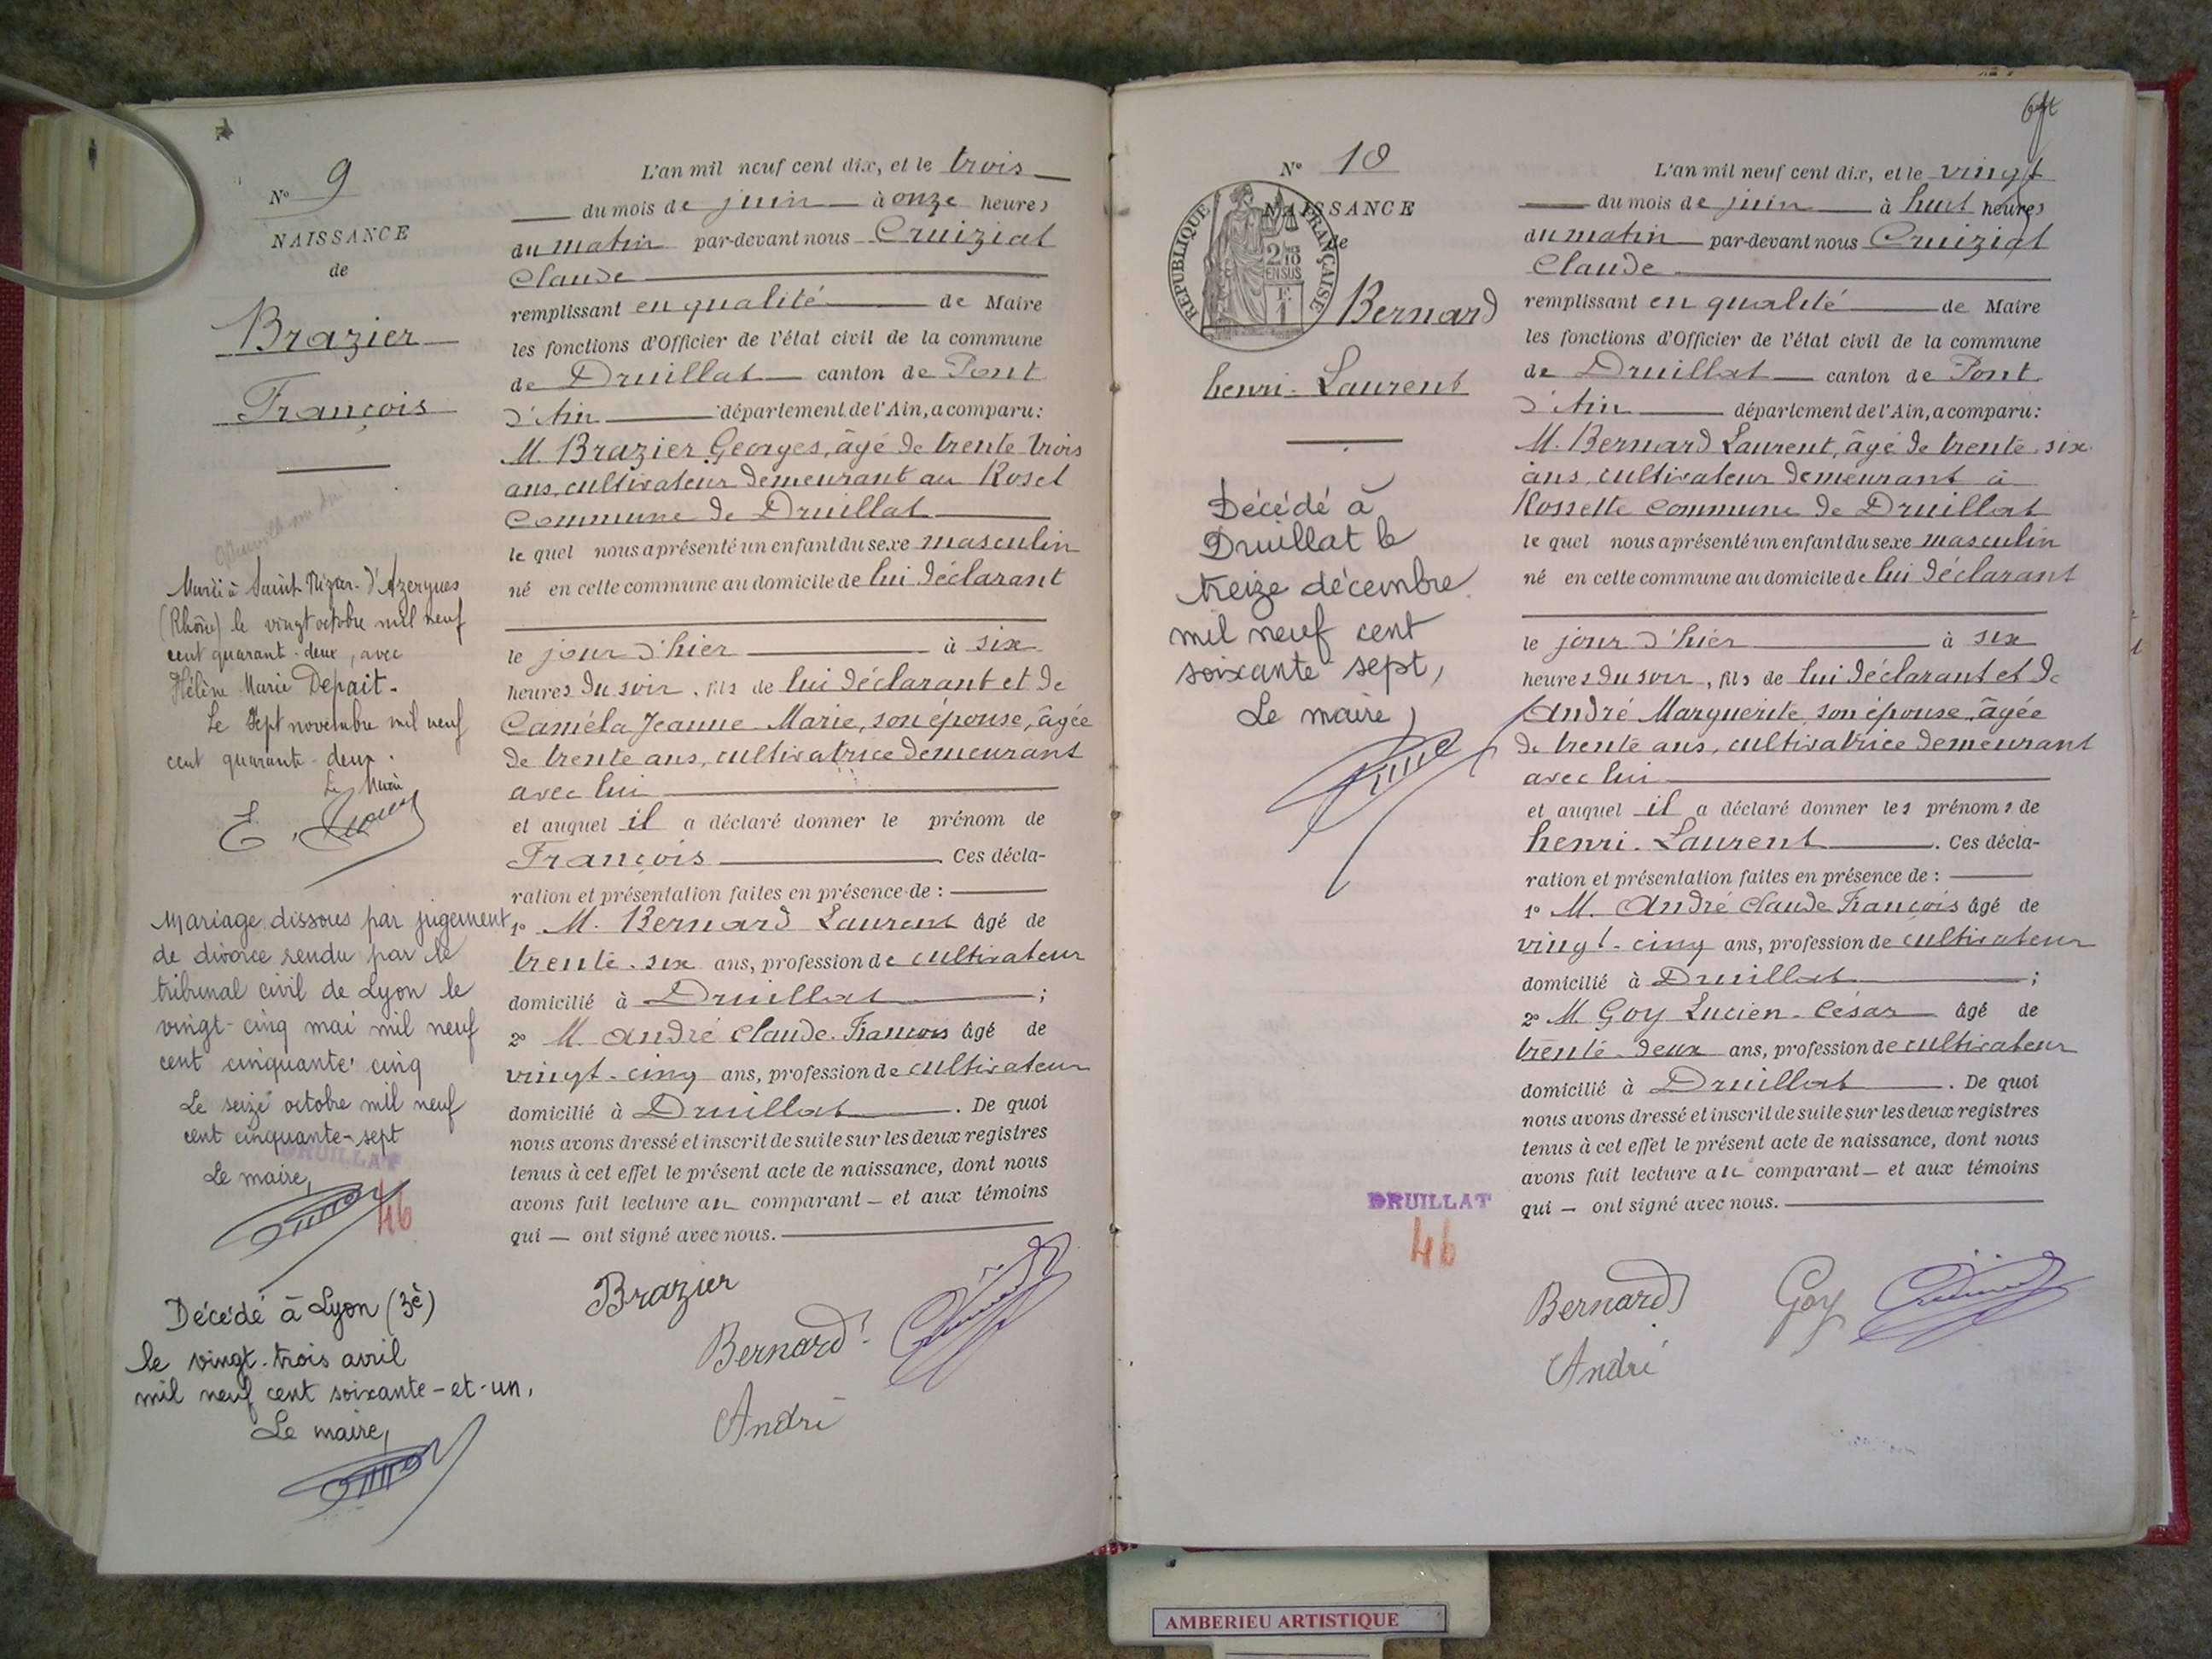 Nº 9
NAISSANCE
de
Brazier
François
Marié à Saint-Nizier-d'Azergues
(Rhône) le vingt octobre mil neuf
cent quarant-deux, avec
Hélène Marie Depait.
Le Sept novembre mil neuf
cent quarante-deux.
Le Maire
E.
Mariage dissous par jugement
de divorce rendu par le
tribunal civil de Lyon le
vingt-cinq mai mil neuf
cent cinquante cinq
Le seize octobre mil neuf
cent cinquante-sept
DRUILLAT
Le maire,
46
Décédé à Lyon (3è)
le vingt-trois avril
mil neuf cent soixante-et-un,
Le maire,
L'an mil neuf cent dix, et le trois
du mois de juin à onze heures
du matin par-devant nous Cruiziat
Claude
remplissant en qualité de Maire
les fonctions d'Officier de l'état civil de la commune
de Druillat canton de Pont
d'Ain département de l'Ain, a comparu:
M. Brazier Georges, âgé de trente-trois
ans, cultivateur demeurant au Roset
Commune de Druillat
le quel nous a présenté un enfant du sexe masculin
né en cette commune au domicile de lui déclarant
le jour d'hier à six
heures du soir, fils de lui déclarant et de
Caméla Jeanne-Marie, son épouse, âgée
de trente ans, cultivatrice demeurant
avec lui
et auquel il a déclaré donner le prénom de
François Ces décla-
ration et présentation faites en présence de :
1º M. Bernard Laurent âgé de
trente-six ans, profession de cultivateur
domicilié à Druillat ;
2º M. André Claude-François âgé de
vingt-cinq ans, profession de cultivateur
domicilié à Druillat . De quoi
nous avons dressé et inscrit de suite sur les deux registres
tenus à cet effet le présent acte de naissance, dont nous
avons fait lecture au comparant — et aux témoins
qui — ont signé avec nous.
Brazier
Bernard
André
Nº 10
NAISSANCE
de
RÉPUBLIQUE FRANÇAISE
2/10 EN SUS
1 F
Bernard
henri-Laurent
Décédé à
Druillat le
treize décembre
mil neuf cent
soixante sept,
Le maire,
DRUILLAT
46
L'an mil neuf cent dix, et le vingt
du mois de juin à huit heures
du matin par-devant nous Cruiziat
Claude
remplissant en qualité de Maire
les fonctions d'Officier de l'état civil de la commune
de Druillat canton de Pont
d'Ain département de l'Ain, a comparu:
M. Bernard Laurent, âgé de trente-six
ans, cultivateur demeurant à
Rossette commune de Druillat
le quel nous a présenté un enfant du sexe masculin
né en cette commune au domicile de lui déclarant
le jour d'hier à six
heures du soir, fils de lui déclarant et de
André Marguerite, son épouse, âgée
de trente ans, cultivatrice demeurant
avec lui
et auquel il a déclaré donner les prénoms de
henri-Laurent . Ces décla-
ration et présentation faites en présence de :
1º M. André Claude François âgé de
vingt-cinq ans, profession de cultivateur
domicilié à Druillat ;
2º M. Goy Lucien-César âgé de
trente-deux ans, profession de cultivateur
domicilié à Druillat . De quoi
nous avons dressé et inscrit de suite sur les deux registres
tenus à cet effet le présent acte de naissance, dont nous
avons fait lecture au comparant — et aux témoins
qui — ont signé avec nous.
Bernard Goy
André
AMBERIEU ARTISTIQUE